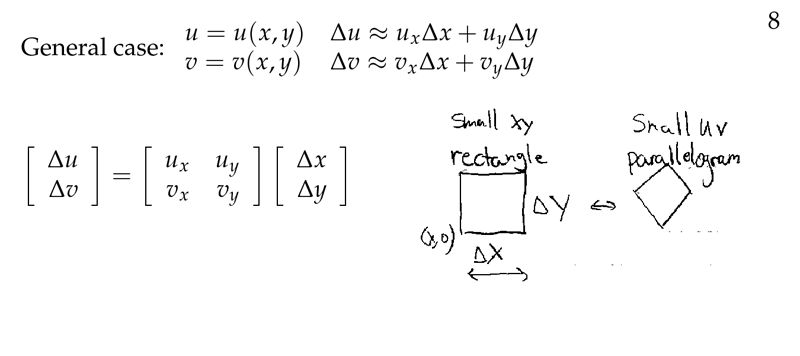 8
General case: u = u(x, y) Δu ≈ u_xΔx + u_yΔy
v = v(x, y) Δv ≈ v_xΔx + v_yΔy
[Δu; Δv] = [u_x u_y; v_x v_y] [Δx; Δy]
Small xy
rectangle
Small uv
parallelogram
ΔY ⇔
(x,0)
ΔX